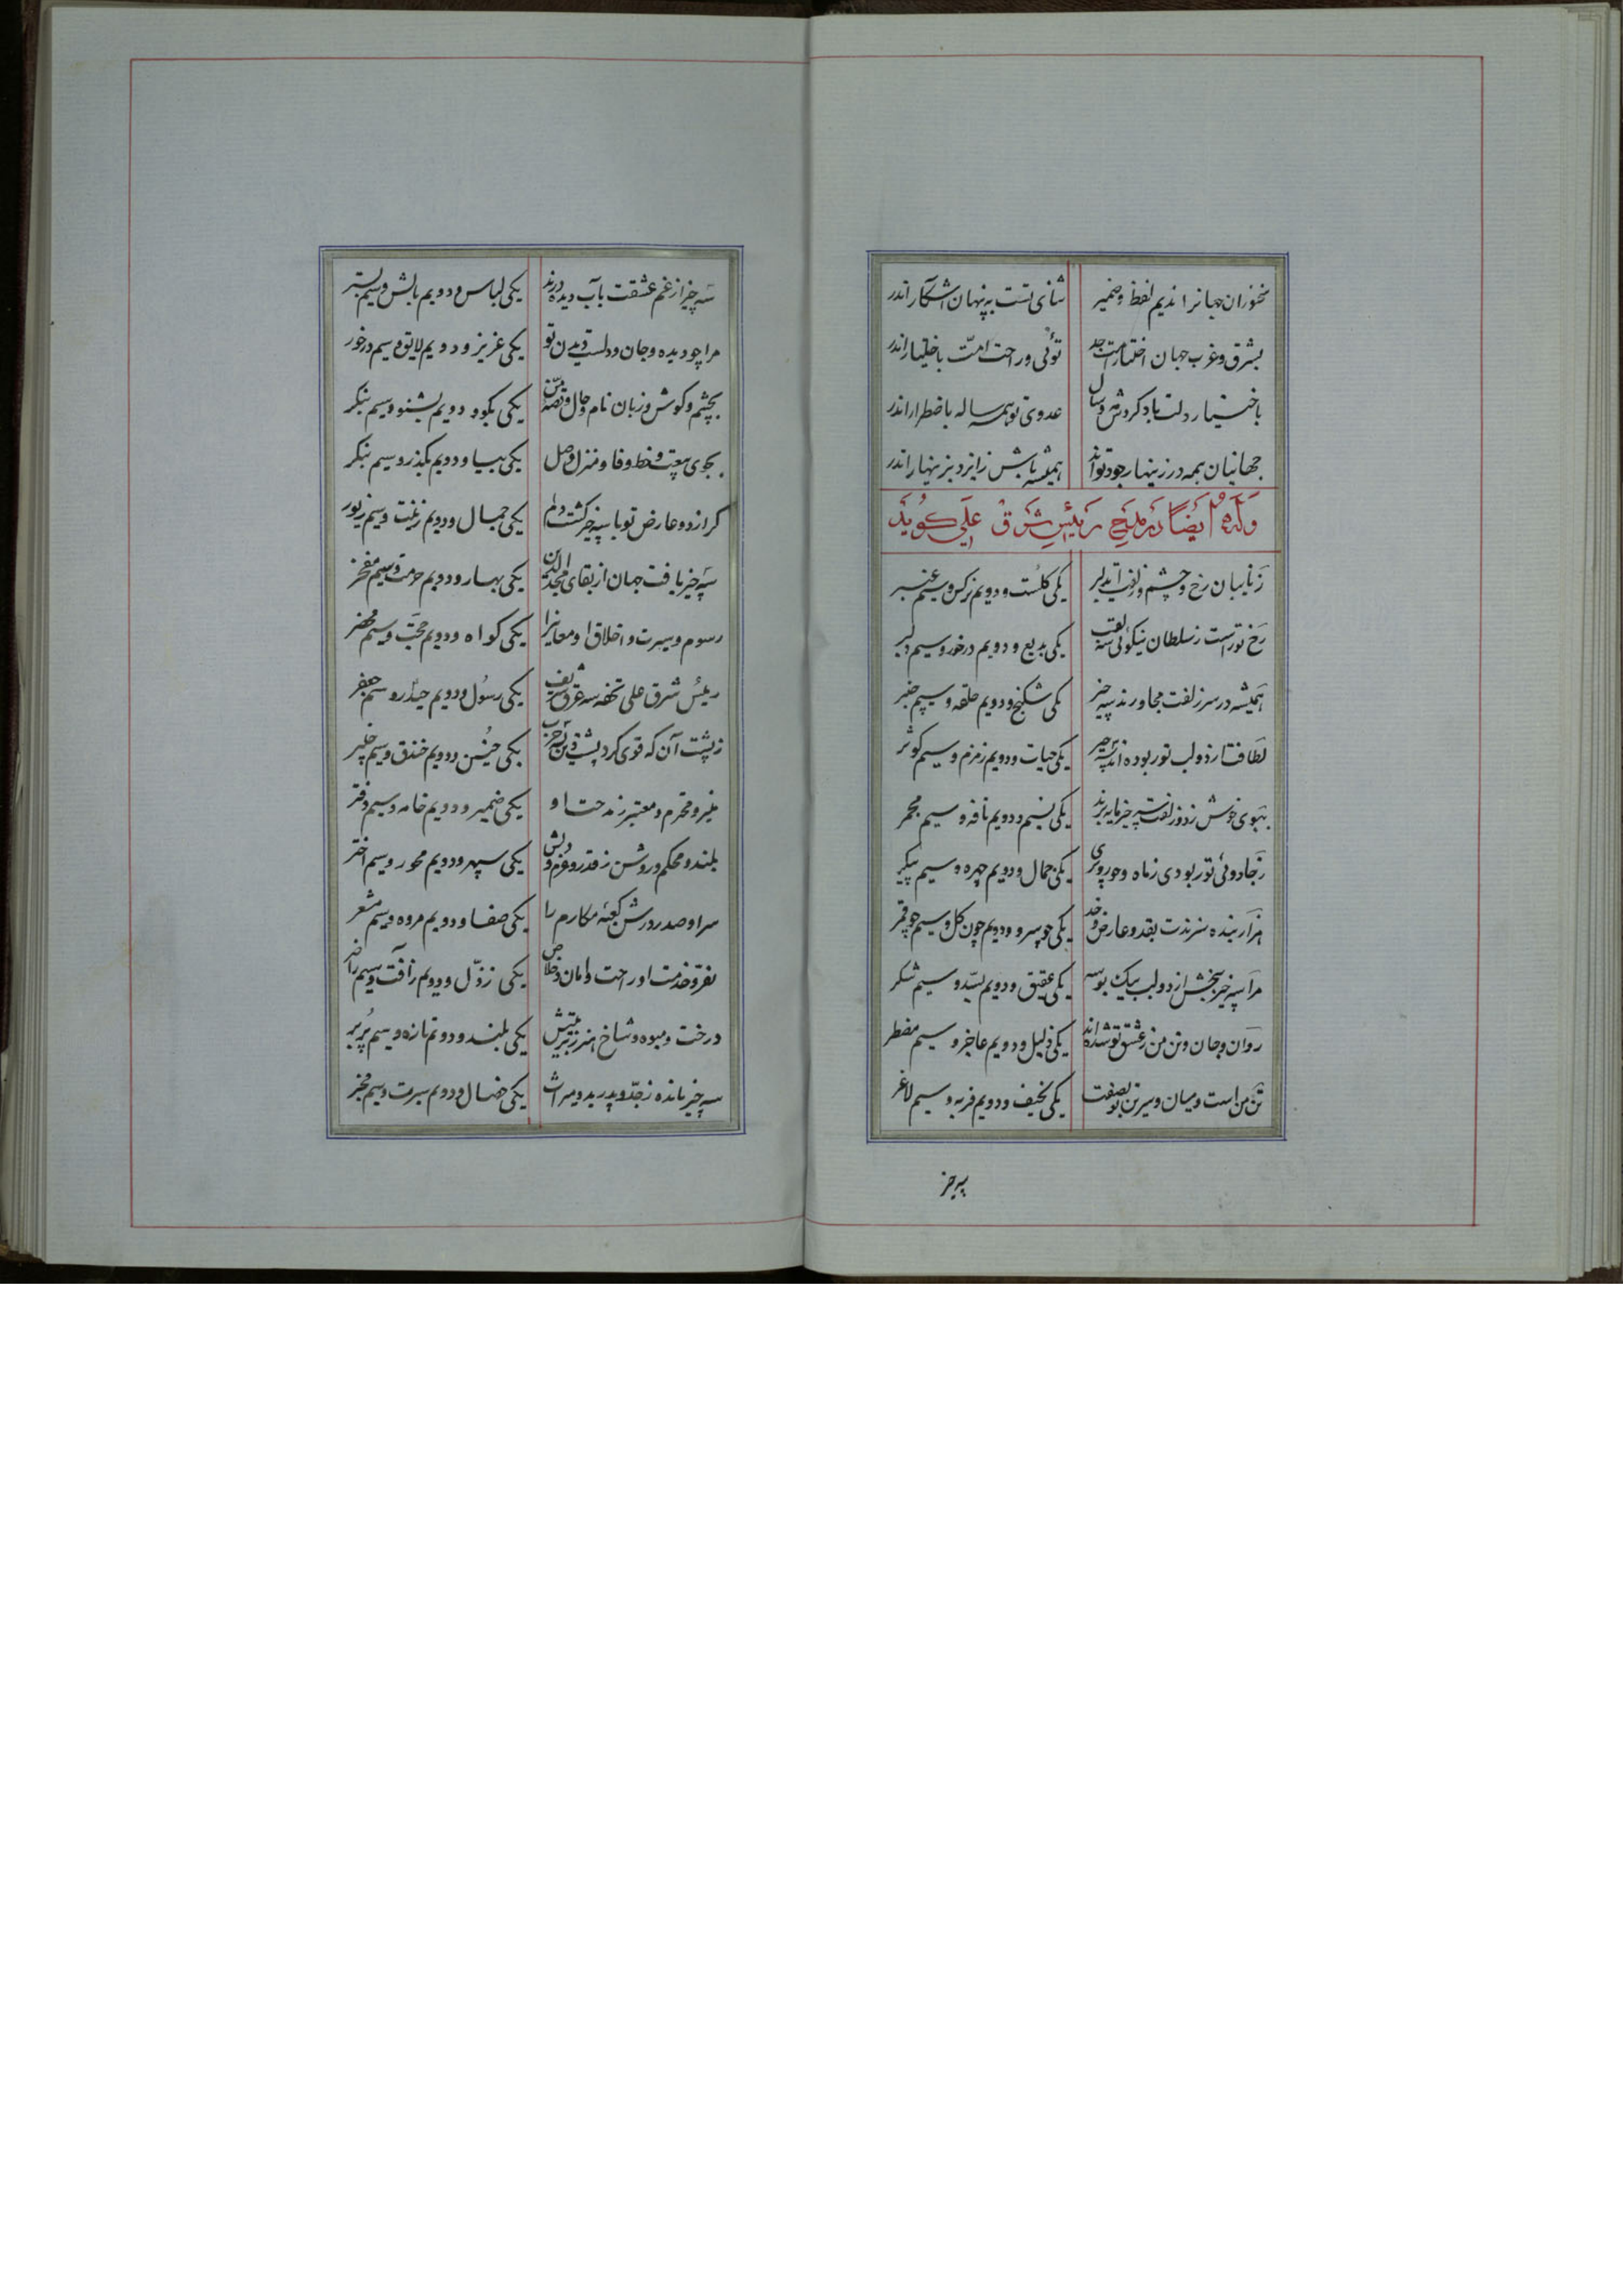 سخنوران جهانرا ندیم لفظ و ضمیر ثنای تست به پنهان اشکار اندر
بشرق و غرب جهان اختیار امت جد توئی و راحت امت باختیار اندر
باختیار دلت باد کردش مه و سال عدوی تو همه ساله باضطرار اندر
جهانیان همه در زینهار جود تواند همیشه باش ز ایزد بزینهار اندر
وله ایضا در مدح رئیس شرق علی کوید
زنایبان رخ و چشم و زلفت ایدلبر یکی کلست و دویم نرکس و سیم عنبر
رخ تو راست ز سلطان نیکوئی سه لقب یکی بدیع و دویم درخور و سیم دلبر
همیشه در سر زلفت مجاورند سه چیز یکی شکنج و دویم حلقه و سیم چنبر
لطافت از دو لب تو ربوده اند سه چیز یکی حیات و دویم زمزم و سیم کوثر
ببوی خوش ز دو زلفت سه چیز مایه برند یکی نسیم و دویم نافه و سیم مجمر
ز جادوئی تو ربودی ز ماه و حور و پری یکی جمال و دویم چهره و سیم پیکر
هزار بنده سزندت بقد و عارض و خد یکی چو سرو و دویم چون کل و سیم چو قمر
مرا سه چیز ببخش از دو لب بیک بوسه یکی عقیق و دویم بسّد و سیم شکر
روان و جان و تن من ز عشق تو شده اند یکی ذلیل و دویم عاجز و سیم مضطر
تن من است و میان و سرین تو بصفت یکی نحیف و دویم فربه و سیم لاغر
سه چیز
سه چیز از غم عشقت بآب دیده درند یکی لباس و دویم بالش و سیم بستر
مرا چو دیده و جان و دلست دیدن تو یکی عزیز و دویم لایق و سیم درخور
بچشم و کوش و زبان نام و حال و قصه من یکی بکو و دویم بشنو و سیم بنکر
بجوی بیعت و خط وفا و منزل وصل یکی بیا و دویم بگذر و سیم بنکر
کر از دو عارض تو با سه چیز کشت دلم یکی جمال و دویم زینت و سیم زیور
سه چیز یافت جهان از بقای مجدالدین یکی بهار و دویم حرمت و سیم مفخر
رسوم و سیرت و اخلاق او معانیرا یکی کواه و دویم حجّت و سیم محضر
رئیس شرق علی تحفه سه عرق شریف یکی رسول و دویم حیدر و سیم جعفر
ز پشت آن که قوی کرد پشت دین سه حرب یکی حنین و دویم خندق و سیم خیبر
منیر و محترم و معتبر ز مدحت او یکی ضمیر و دویم خامه و سیم دفتر
بلند و محکم و روشن ز قدر و عزم و دلش یکی سپهر و دویم محور و سیم اختر
سرا و صدر و درش کعبهٔ مکارم را یکی صفا و دویم مروه و سیم مشعر
درخت و میوه و شاخ هنر ز تربیتش یکی بلند و دوم تازه و سیم پُر بر
سه چیز مانده ز جدّ و پدر بدو میراث یکی خصال و دوم سیرت و سیم مخبر